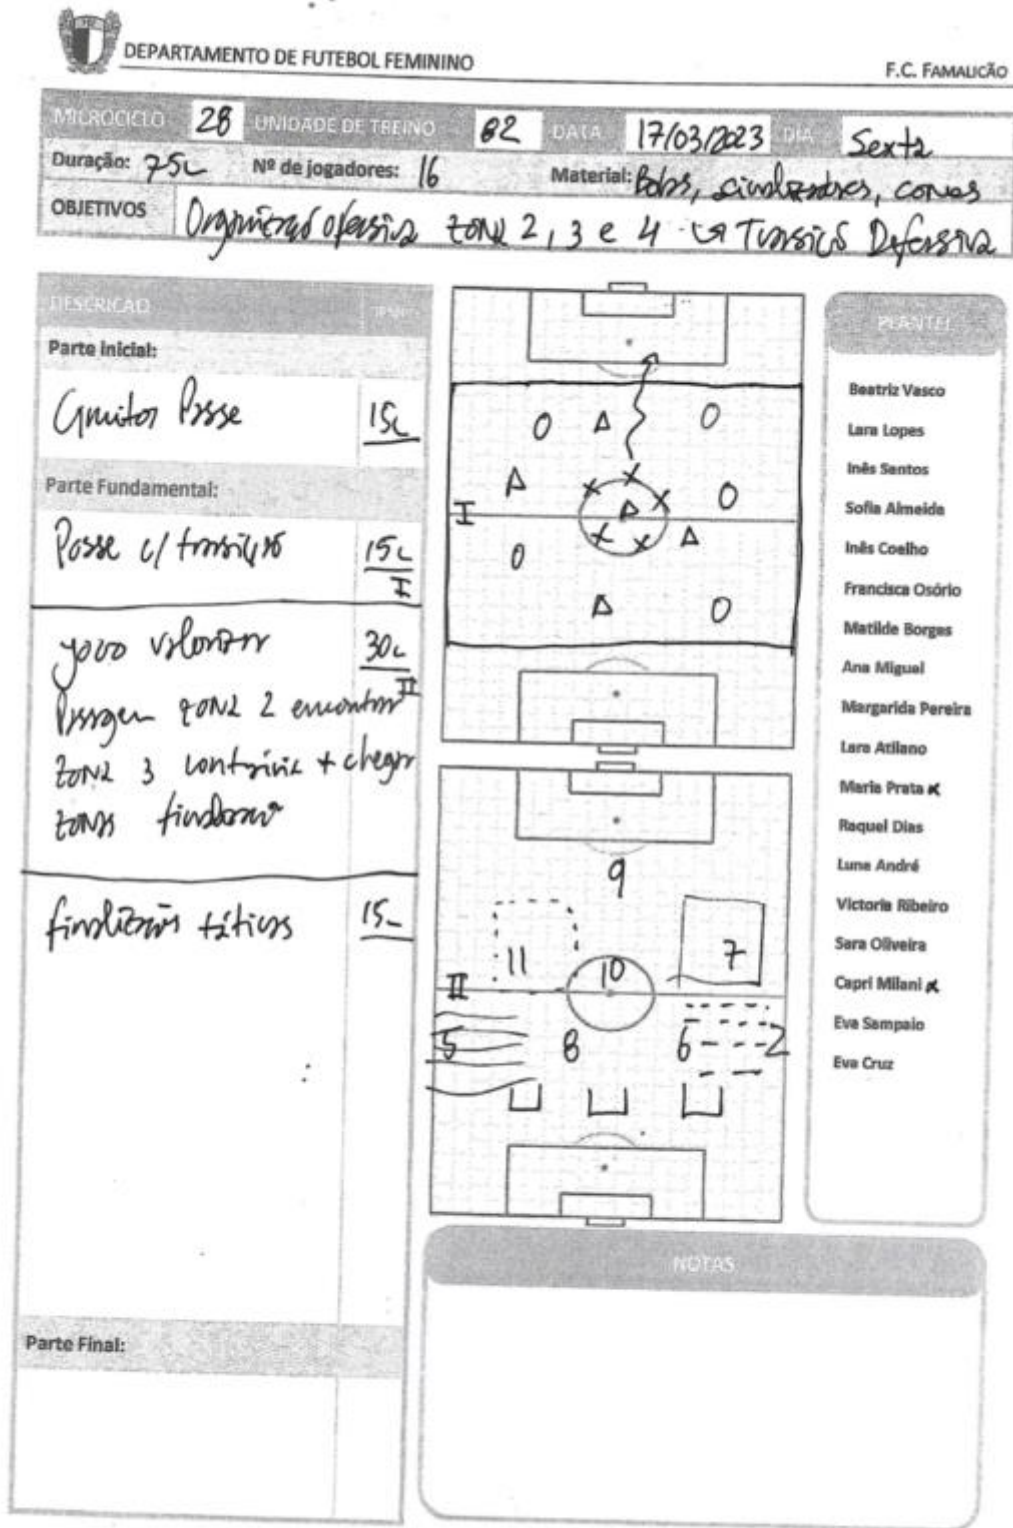 DEPARTAMENTO DE FUTEBOL FEMININO
F.C. FAMALICÃO
MICROCICLO 28 UNIDADE DE TREINO 82 DATA 17/03/2023 DIA Sexta
Duração: 75' Nº de jogadores: 16 Material: Bolas, sinalizadores, cones
OBJETIVOS Organização ofensiva zona 2, 3 e 4 ↳ Transição Defensiva
DESCRIÇÃO TEMPO
Parte inicial:
Passe 15'
Parte Fundamental:
Posse c/ transição 15'
I
jogo valorizar 30'
II
zona 2 encontrar
zona 3 contrária + chegar
zonas finalização
finalizações táticas 15'
Parte Final:
I
II
9
11 10 7
5 8 6 2
PLANTEL
Beatriz Vasco
Lara Lopes
Inês Santos
Sofia Almeida
Inês Coelho
Francisca Osório
Matilde Borges
Ana Miguel
Margarida Pereira
Lara Atilano
Maria Prata x
Raquel Dias
Lune André
Victoria Ribeiro
Sara Oliveira
Capri Milani x
Eva Sampaio
Eva Cruz
NOTAS